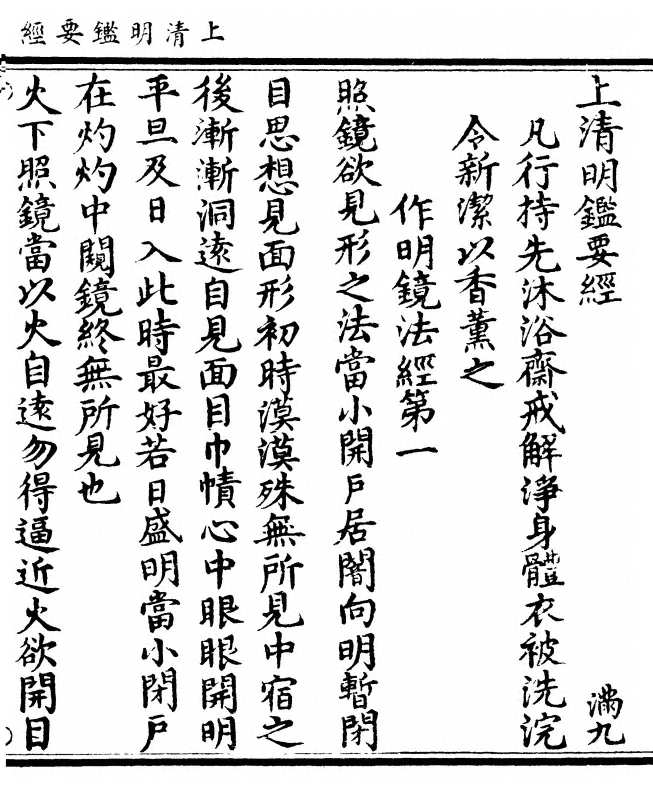 上清明鑑要經
上清明鑑要經 滿九
凡行持先沐浴齋戒解淨身體衣被洗浣
令新潔以香薰之
作明鏡法經第一
照鏡欲見形之法當小開戶居闇向明暫閉
目思想見面形初時漠漠殊無所見中宿之
後漸漸洞遠自見面目巾幘心中眼眼開明
平旦及日入此時最好若日盛明當小閉戶
在灼灼中闚鏡終無所見也
火下照鏡當以火自遠勿得逼近火欲開目